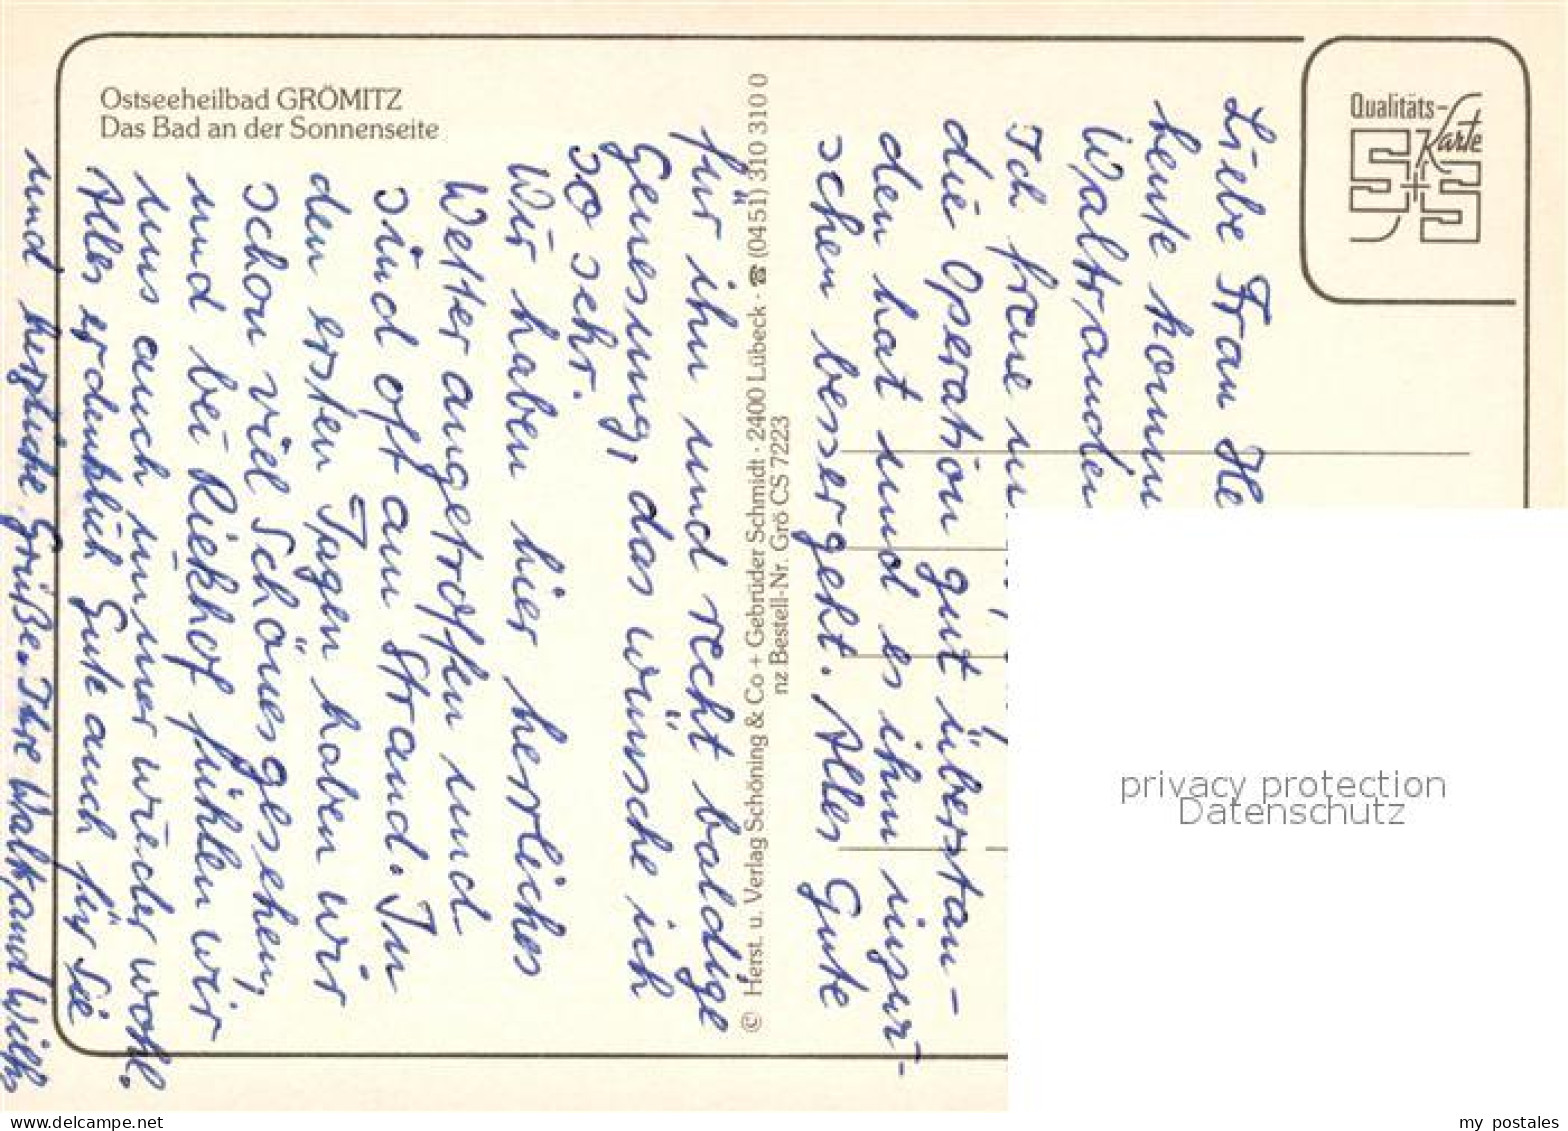 Ostseeheilbad GRÖMITZ
Das Bad an der Sonnenseite
Qualitäts-
Karte
S+S
© Herst. u. Verlag Schöning & Co + Gebrüder Schmidt · 2400 Lübeck · ☎ (0451) 310 310 0
nz Bestell-Nr. Grö CS 7223
Liebe Frau He
heute
Ich freue
die Operation gut überstan-
den hat und es ihm inzwi-
schen besser geht. Alles Gute
für ihn und recht baldige
Genesung, das wünsche ich
so sehr.
Wir haben hier herrliches
Wetter angetroffen und
sind oft am Strand. In
den ersten Tagen haben wir
schon viel Schönes gesehen,
und bei Riekhof fühlen wir
uns auch immer wieder wohl.
Alles erdenklich Gute auch für Sie
und herzliche Grüße. Ihre
privacy protection
Datenschutz
my_postales